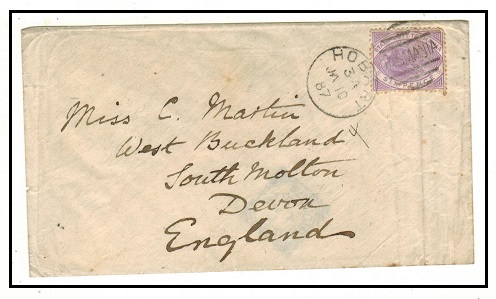 HOBART
3 A
JA 10
87
Miss C. Martin
West Buckland
South Molton
Devon
England